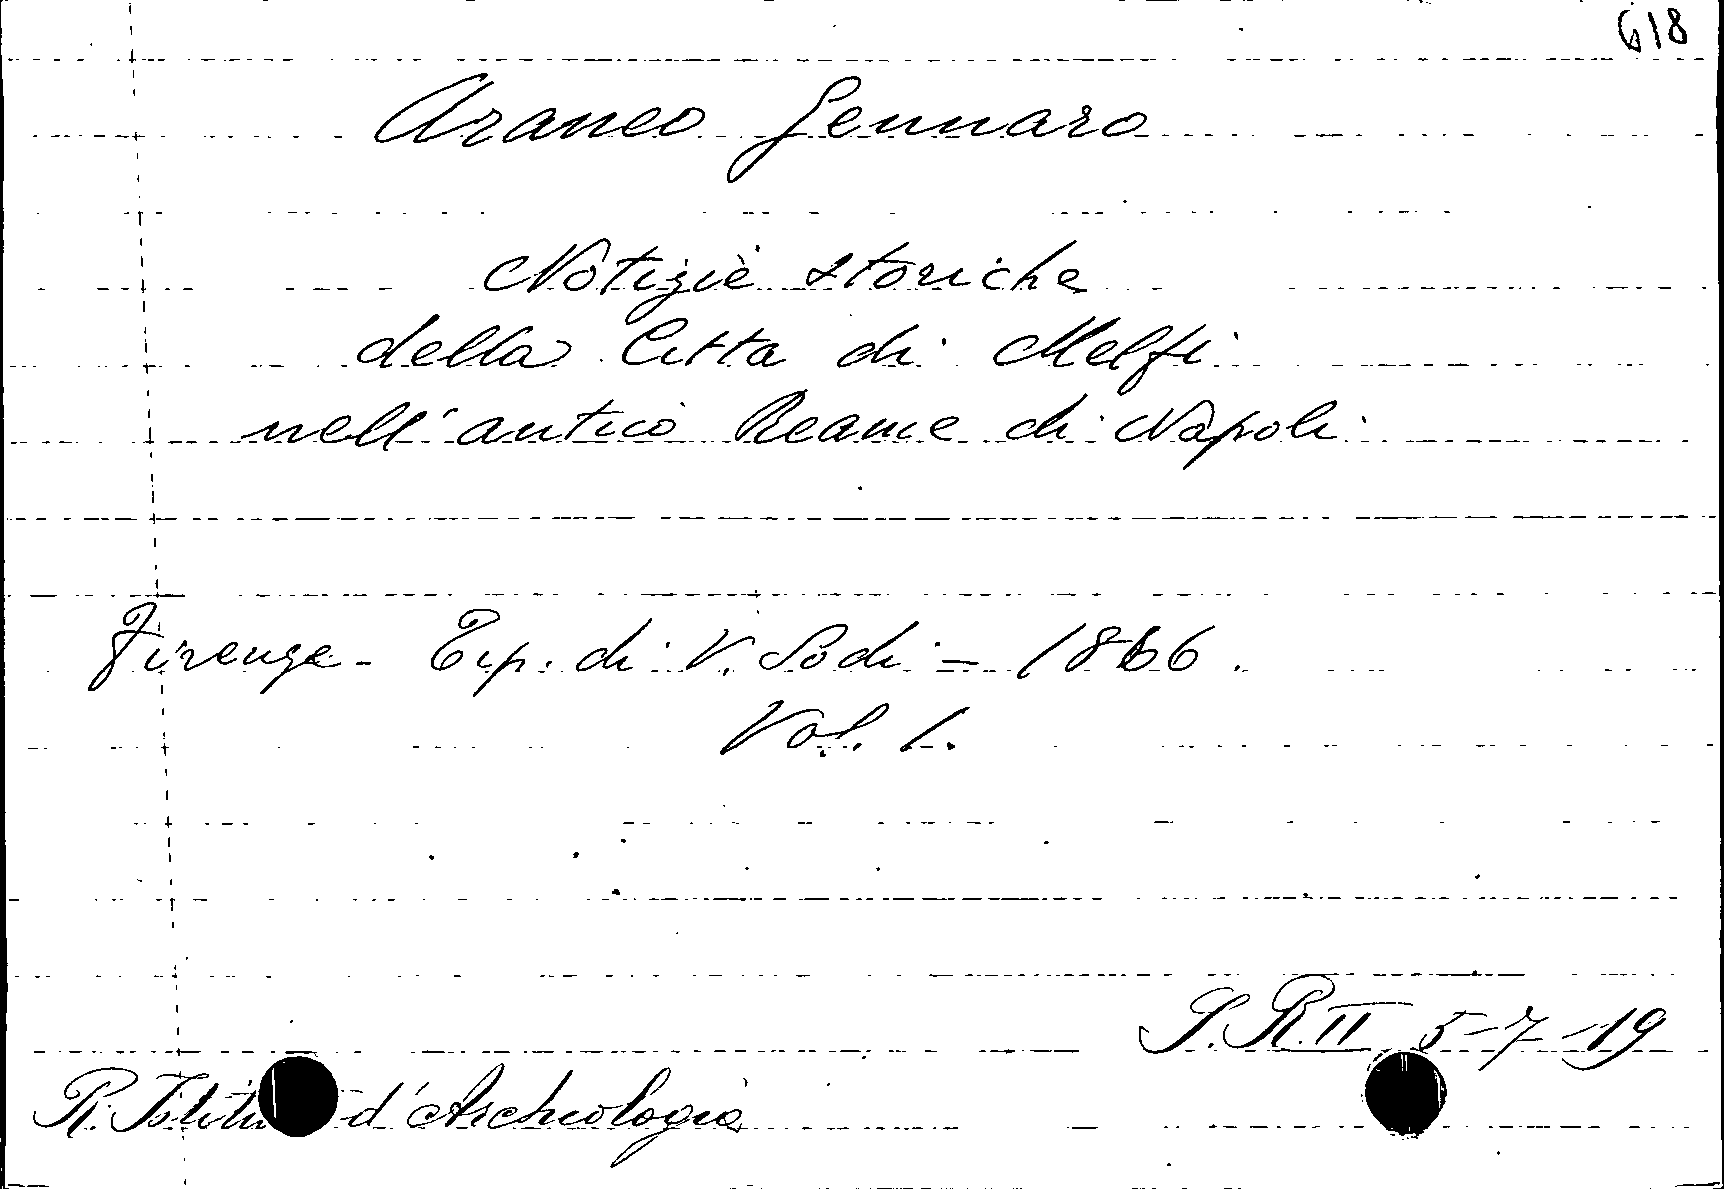 618
Araneo Gennaro
Notizie storiche
della Città di Melfi
nell'antico Reame di Napoli
Firenze - Tip. di V. Sodi = 1866.
Vol. 1.
S. R. II 5-7-19
R. Istitu d'Archeologia